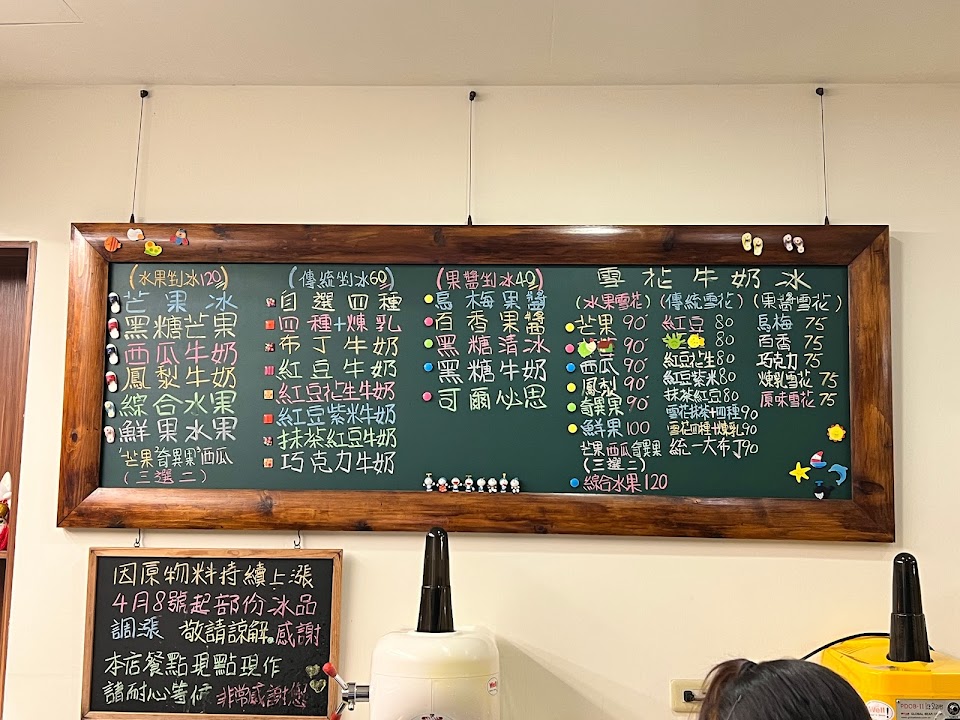 (水果剉冰120)
芒果冰
黑糖芒果
西瓜牛奶
鳳梨牛奶
綜合水果
鮮果水果
芒果奇異果西瓜
(三選二)
(傳統剉冰60)
自選四種
四種+煉乳
布丁牛奶
紅豆牛奶
紅豆花生牛奶
紅豆紫米牛奶
抹茶紅豆牛奶
巧克力牛奶
(果醬剉冰40)
烏梅果醬
百香果醬
黑糖清冰
黑糖牛奶
可爾必思
雪花牛奶冰
(水果雪花)
芒果 90
90
西瓜 90
鳳梨 90
奇異果 90
鮮果 100
芒果西瓜奇異果
(三選二)
綜合水果 120
(傳統雪花)
紅豆 80
80
紅豆花生 80
紅豆紫米 80
抹茶紅豆 80
雪花抹茶+四種 90
雪花四種+煉乳 90
統一大布丁 90
(果醬雪花)
烏梅 75
百香 75
巧克力 75
煉乳雪花 75
原味雪花 75
因原物料持續上漲
4月8號起部份冰品
調漲 敬請諒解。感謝
本店餐點現點現作
請耐心等候 非常感謝您